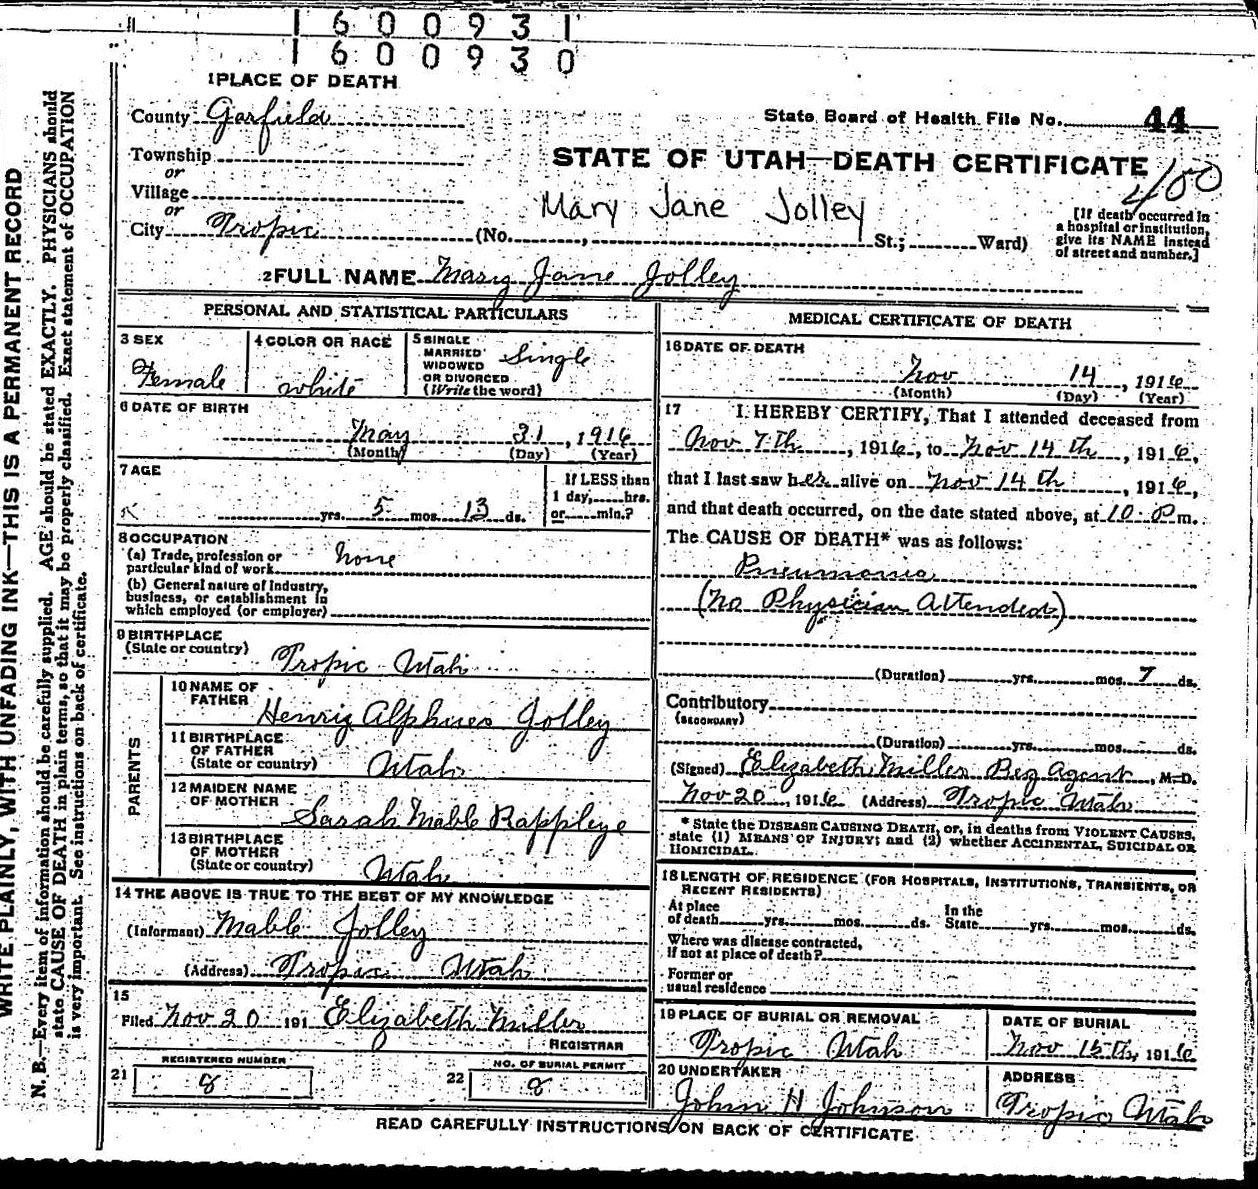 1 6 0 0 9 3 1
1 6 0 0 9 3 0
1 PLACE OF DEATH
County Garfield
State Board of Health File No. 44
Township
or
STATE OF UTAH—DEATH CERTIFICATE
400
Village
or
Mary Jane Jolley
City Tropic (No. , St.; Ward)
[If death occurred in
a hospital or institution,
give its NAME instead
of street and number.]
2 FULL NAME Mary Jane Jolley
PERSONAL AND STATISTICAL PARTICULARS
3 SEX
Female
4 COLOR OR RACE
white
5 SINGLE
MARRIED
WIDOWED
OR DIVORCED
(Write the word)
Single
6 DATE OF BIRTH
May 31, 1916
(Month) (Day) (Year)
7 AGE
yrs. 5 mos. 13 ds.
If LESS than
1 day, hrs.
or min.?
8 OCCUPATION
(a) Trade, profession or
particular kind of work none
(b) General nature of industry,
business, or establishment in
which employed (or employer)
9 BIRTHPLACE
(State or country)
Tropic Utah
PARENTS
10 NAME OF
FATHER
Henrig Alphues Jolley
11 BIRTHPLACE
OF FATHER
(State or country)
Utah
12 MAIDEN NAME
OF MOTHER
Sarah Mable Rappleye
13 BIRTHPLACE
OF MOTHER
(State or country)
Utah
14 THE ABOVE IS TRUE TO THE BEST OF MY KNOWLEDGE
(Informant) Mable Jolley
(Address) Tropic Utah
15
Filed Nov 20 191 Elizabeth Miller
REGISTRAR
REGISTERED NUMBER
21 8
NO. OF BURIAL PERMIT
22 8
MEDICAL CERTIFICATE OF DEATH
16 DATE OF DEATH
Nov 14, 1916
(Month) (Day) (Year)
17 I HEREBY CERTIFY, That I attended deceased from
Nov 7th, 1916, to Nov 14th, 1916,
that I last saw her alive on Nov 14th, 1916,
and that death occurred, on the date stated above, at 10 P m.
The CAUSE OF DEATH* was as follows:
Pneumonia
(No Physician Attended)
(Duration) yrs. mos. 7 ds.
Contributory
(SECONDARY)
(Duration) yrs. mos. ds.
(Signed) Elizabeth Miller Reg Agent, M.D.
Nov 20, 1916 (Address) Tropic Utah
* State the DISEASE CAUSING DEATH, or, in deaths from VIOLENT CAUSES,
state (1) MEANS OF INJURY; and (2) whether ACCIDENTAL, SUICIDAL OR
HOMICIDAL.
18 LENGTH OF RESIDENCE (FOR HOSPITALS, INSTITUTIONS, TRANSIENTS, OR
RECENT RESIDENTS)
At place
of death yrs. mos. ds.
In the
State yrs. mos. ds.
Where was disease contracted,
if not at place of death?
Former or
usual residence
19 PLACE OF BURIAL OR REMOVAL
Tropic Utah
DATE OF BURIAL
Nov 15th, 1916
20 UNDERTAKER
John H Johnson
ADDRESS
Tropic Utah
READ CAREFULLY INSTRUCTIONS ON BACK OF CERTIFICATE
WRITE PLAINLY, WITH UNFADING INK—THIS IS A PERMANENT RECORD
N. B.—Every item of information should be carefully supplied. AGE should be stated EXACTLY. PHYSICIANS should
state CAUSE OF DEATH in plain terms, so that it may be properly classified. Exact statement of OCCUPATION
is very important. See instructions on back of certificate.